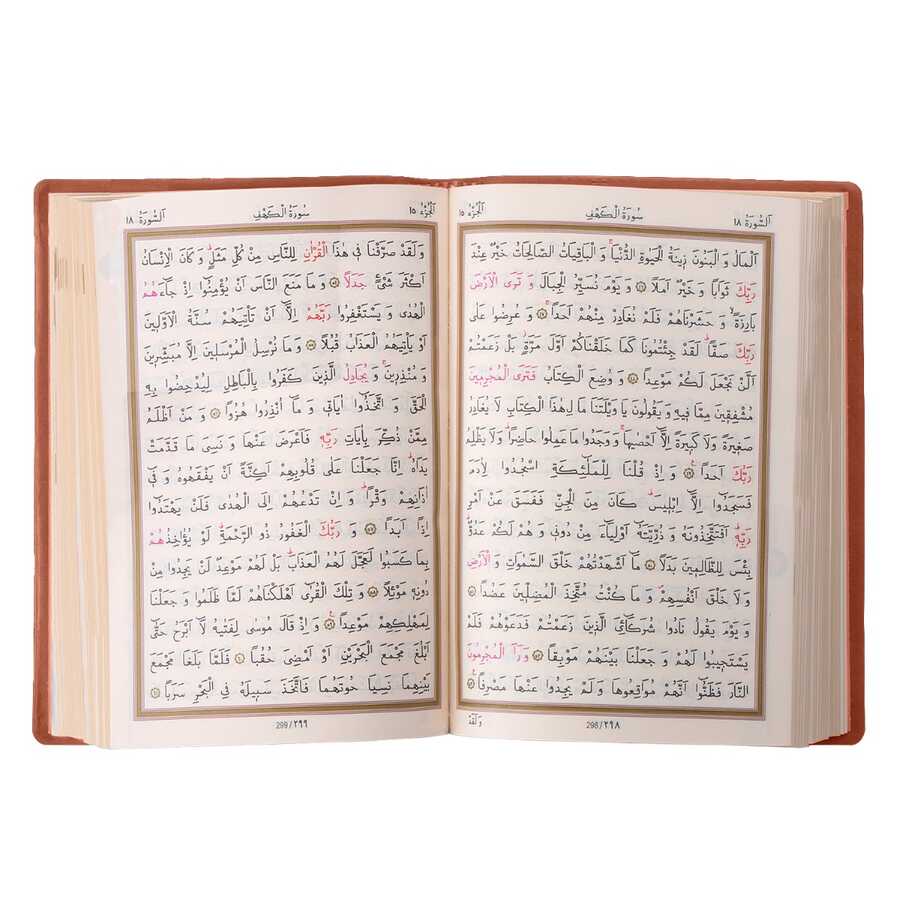 اَلسُّورَةُ ١٨
سُورَةُ الْكَهْفِ
اَلْجُزْءُ ١٥
اَلْمَالُ وَ الْبَنُونَ ز۪ينَةُ الْحَيٰوةِ الدُّنْيَاۚ وَ الْبَاقِيَاتُ الصَّالِحَاتُ خَيْرٌ عِنْدَ
رَبِّكَ ثَوَابًا وَ خَيْرٌ اَمَلًا ۝ وَ يَوْمَ نُسَيِّرُ الْجِبَالَ وَ تَرَى الْاَرْضَ
بَارِزَةًۙ وَ حَشَرْنَاهُمْ فَلَمْ نُغَادِرْ مِنْهُمْ اَحَدًاۚ ۝ وَ عُرِضُوا عَلٰى
رَبِّكَ صَفًّاۜ لَقَدْ جِئْتُمُونَا كَمَا خَلَقْنَاكُمْ اَوَّلَ مَرَّةٍۘ بَلْ زَعَمْتُمْ
اَلَّنْ نَجْعَلَ لَكُمْ مَوْعِدًا ۝ وَ وُضِعَ الْكِتَابُ فَتَرَى الْمُجْرِم۪ينَ
مُشْفِق۪ينَ مِمَّا ف۪يهِ وَ يَقُولُونَ يَا وَيْلَتَنَا مَا لِ هٰذَا الْكِتَابِ لَا يُغَادِرُ
صَغ۪يرَةً وَ لَا كَب۪يرَةً اِلَّٓا اَحْصٰيهَاۚ وَ وَجَدُوا مَا عَمِلُوا حَاضِرًاۜ وَ لَا يَظْلِمُ
رَبُّكَ اَحَدًا۟ ۝ وَ اِذْ قُلْنَا لِلْمَلٰٓئِكَةِ اسْجُدُوا لِاٰدَمَ
فَسَجَدُٓوا اِلَّٓا اِبْل۪يسَۜ كَانَ مِنَ الْجِنِّ فَفَسَقَ عَنْ اَمْرِ
رَبِّه۪ۜ اَفَتَتَّخِذُونَهُ وَ ذُرِّيَّتَهُٓ اَوْلِيَٓاءَ مِنْ دُون۪ى وَ هُمْ لَكُمْ عَدُوٌّۜ
بِئْسَ لِلظَّالِم۪ينَ بَدَلًا ۝ مَٓا اَشْهَدْتُهُمْ خَلْقَ السَّمٰوَاتِ وَ الْاَرْضِ
وَ لَا خَلْقَ اَنْفُسِهِمْۖ وَ مَا كُنْتُ مُتَّخِذَ الْمُضِلّ۪ينَ عَضُدًا ۝
وَ يَوْمَ يَقُولُ نَادُوا شُرَكَٓائِىَ الَّذ۪ينَ زَعَمْتُمْ فَدَعَوْهُمْ فَلَمْ
يَسْتَج۪يبُوا لَهُمْ وَ جَعَلْنَا بَيْنَهُمْ مَوْبِقًا ۝ وَ رَاَ الْمُجْرِمُونَ
النَّارَ فَظَنُّٓوا اَنَّهُمْ مُوَاقِعُوهَا وَ لَمْ يَجِدُوا عَنْهَا مَصْرِفًا۟ ۝
298 / ٢٩٨
وَ لَقَدْ
اَلْجُزْءُ ١٥
سُورَةُ الْكَهْفِ
اَلسُّورَةُ ١٨
وَ لَقَدْ صَرَّفْنَا ف۪ى هٰذَا الْقُرْاٰنِ لِلنَّاسِ مِنْ كُلِّ مَثَلٍۜ وَ كَانَ الْاِنْسَانُ
اَكْثَرَ شَىْءٍ جَدَلًا ۝ وَ مَا مَنَعَ النَّاسَ اَنْ يُؤْمِنُٓوا اِذْ جَٓاءَهُمُ
الْهُدٰى وَ يَسْتَغْفِرُوا رَبَّهُمْ اِلَّٓا اَنْ تَاْتِيَهُمْ سُنَّةُ الْاَوَّل۪ينَ
اَوْ يَاْتِيَهُمُ الْعَذَابُ قُبُلًا ۝ وَ مَا نُرْسِلُ الْمُرْسَل۪ينَ اِلَّا مُبَشِّر۪ينَ
وَ مُنْذِر۪ينَۚ وَ يُجَادِلُ الَّذ۪ينَ كَفَرُوا بِالْبَاطِلِ لِيُدْحِضُوا بِهِ
الْحَقَّ وَ اتَّخَذُٓوا اٰيَات۪ى وَ مَٓا اُنْذِرُوا هُزُوًا ۝ وَ مَنْ اَظْلَمُ
مِمَّنْ ذُكِّرَ بِاٰيَاتِ رَبِّه۪ فَاَعْرَضَ عَنْهَا وَ نَسِىَ مَا قَدَّمَتْ
يَدَاهُۜ اِنَّا جَعَلْنَا عَلٰى قُلُوبِهِمْ اَكِنَّةً اَنْ يَفْقَهُوهُ وَ ف۪ٓى
اٰذَانِهِمْ وَقْرًاۜ وَ اِنْ تَدْعُهُمْ اِلَى الْهُدٰى فَلَنْ يَهْتَدُٓوا
اِذًا اَبَدًا ۝ وَ رَبُّكَ الْغَفُورُ ذُو الرَّحْمَةِۜ لَوْ يُؤَاخِذُهُمْ
بِمَا كَسَبُوا لَعَجَّلَ لَهُمُ الْعَذَابَۜ بَلْ لَهُمْ مَوْعِدٌ لَنْ يَجِدُوا مِنْ
دُونِه۪ مَوْئِلًا ۝ وَ تِلْكَ الْقُرٰٓى اَهْلَكْنَاهُمْ لَمَّا ظَلَمُوا وَ جَعَلْنَا
لِمَهْلِكِهِمْ مَوْعِدًا۟ ۝ وَ اِذْ قَالَ مُوسٰى لِفَتٰيهُ لَٓا اَبْرَحُ حَتّٰٓى
اَبْلُغَ مَجْمَعَ الْبَحْرَيْنِ اَوْ اَمْضِىَ حُقُبًا ۝ فَلَمَّا بَلَغَا مَجْمَعَ
بَيْنِهِمَا نَسِيَا حُوتَهُمَا فَاتَّخَذَ سَب۪يلَهُ فِى الْبَحْرِ سَرَبًا ۝
299 / ٢٩٩